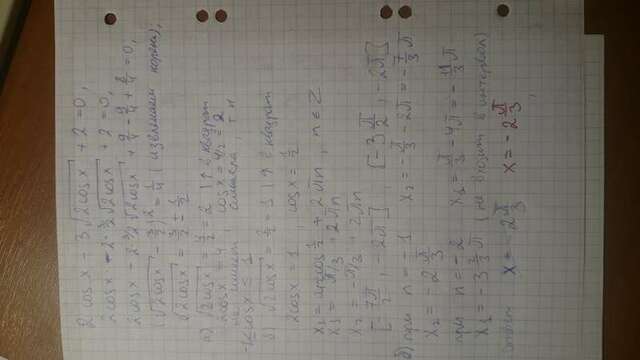 2cosx - 3√2cosx + 2 = 0,
2cosx - 2·3/2√2cosx + 2 = 0,
2cosx - 2·3/2√2cosx + 9/4 - 9/4 + 8/4 = 0,
(√2cosx - 3/2)² = 1/4 (извлекаем корень),
√2cosx = 3/2 ± 1/2
а) √2cosx = 4/2 = 2 | ↑² квадрат
2cosx = 4, cosx = 4/2 = 2
не имеет смысла т.к
-1 ≤ cosx ≤ 1
б) √2cosx = 2/2 = 1 | ↑² квадрат
2cosx = 1, cosx = 1/2
x₁ = arccos 1/2 + 2πn, n ∈ Z
x₁ = π/3 + 2πn
x₂ = -π/3 + 2πn
[-7π/2, -2π] [-3π/2, -2π]
б) при n = -1 x₂ = -π/3 - 2π = -7/3π
x₂ = -2π/3
при n = -2 x₃ = -π/3 4π = -11/3π
x₃ = -3 2/3π (не входит в интервал)
x = -2π/3 x = -2π/3